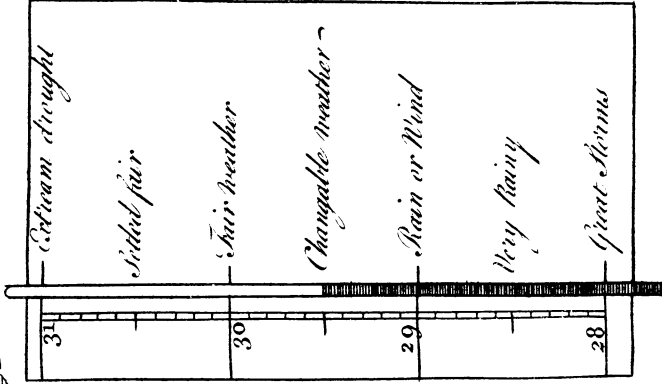 Extream drought
Settled fair
Fair weather
Changable weather
Rain or Wind
Very Rainy
Great Storms
31
30
29
28